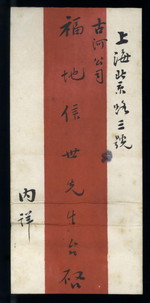 上海北京路三號
古河公司
福地信世先生台啓
內詳